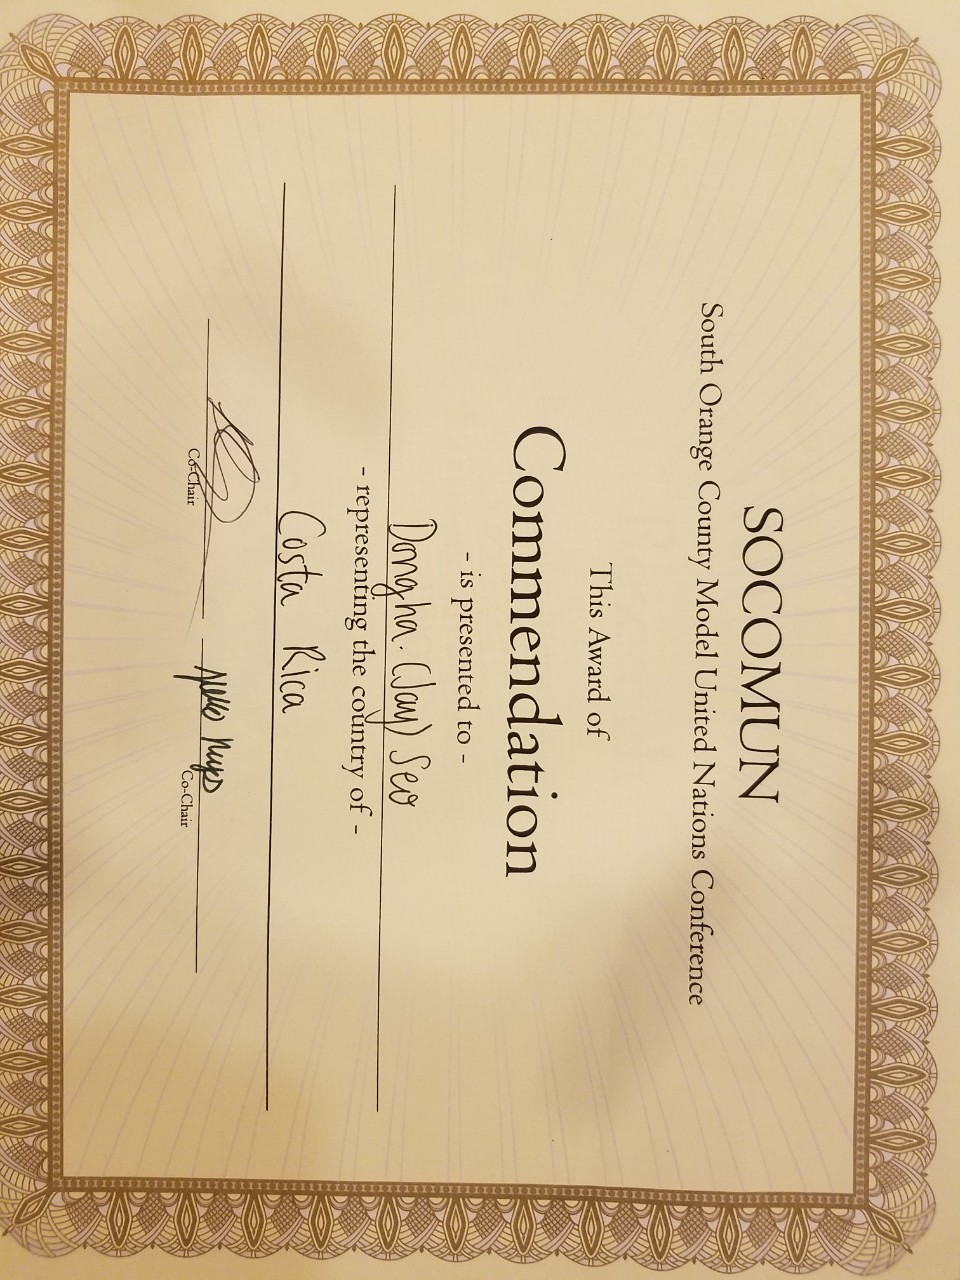 SOCOMUN
South Orange County Model United Nations Conference
This Award of
Commendation
- is presented to -
Dongha. (Jay) Seo
- representing the country of -
Costa Rica
Co-Chair Co-Chair